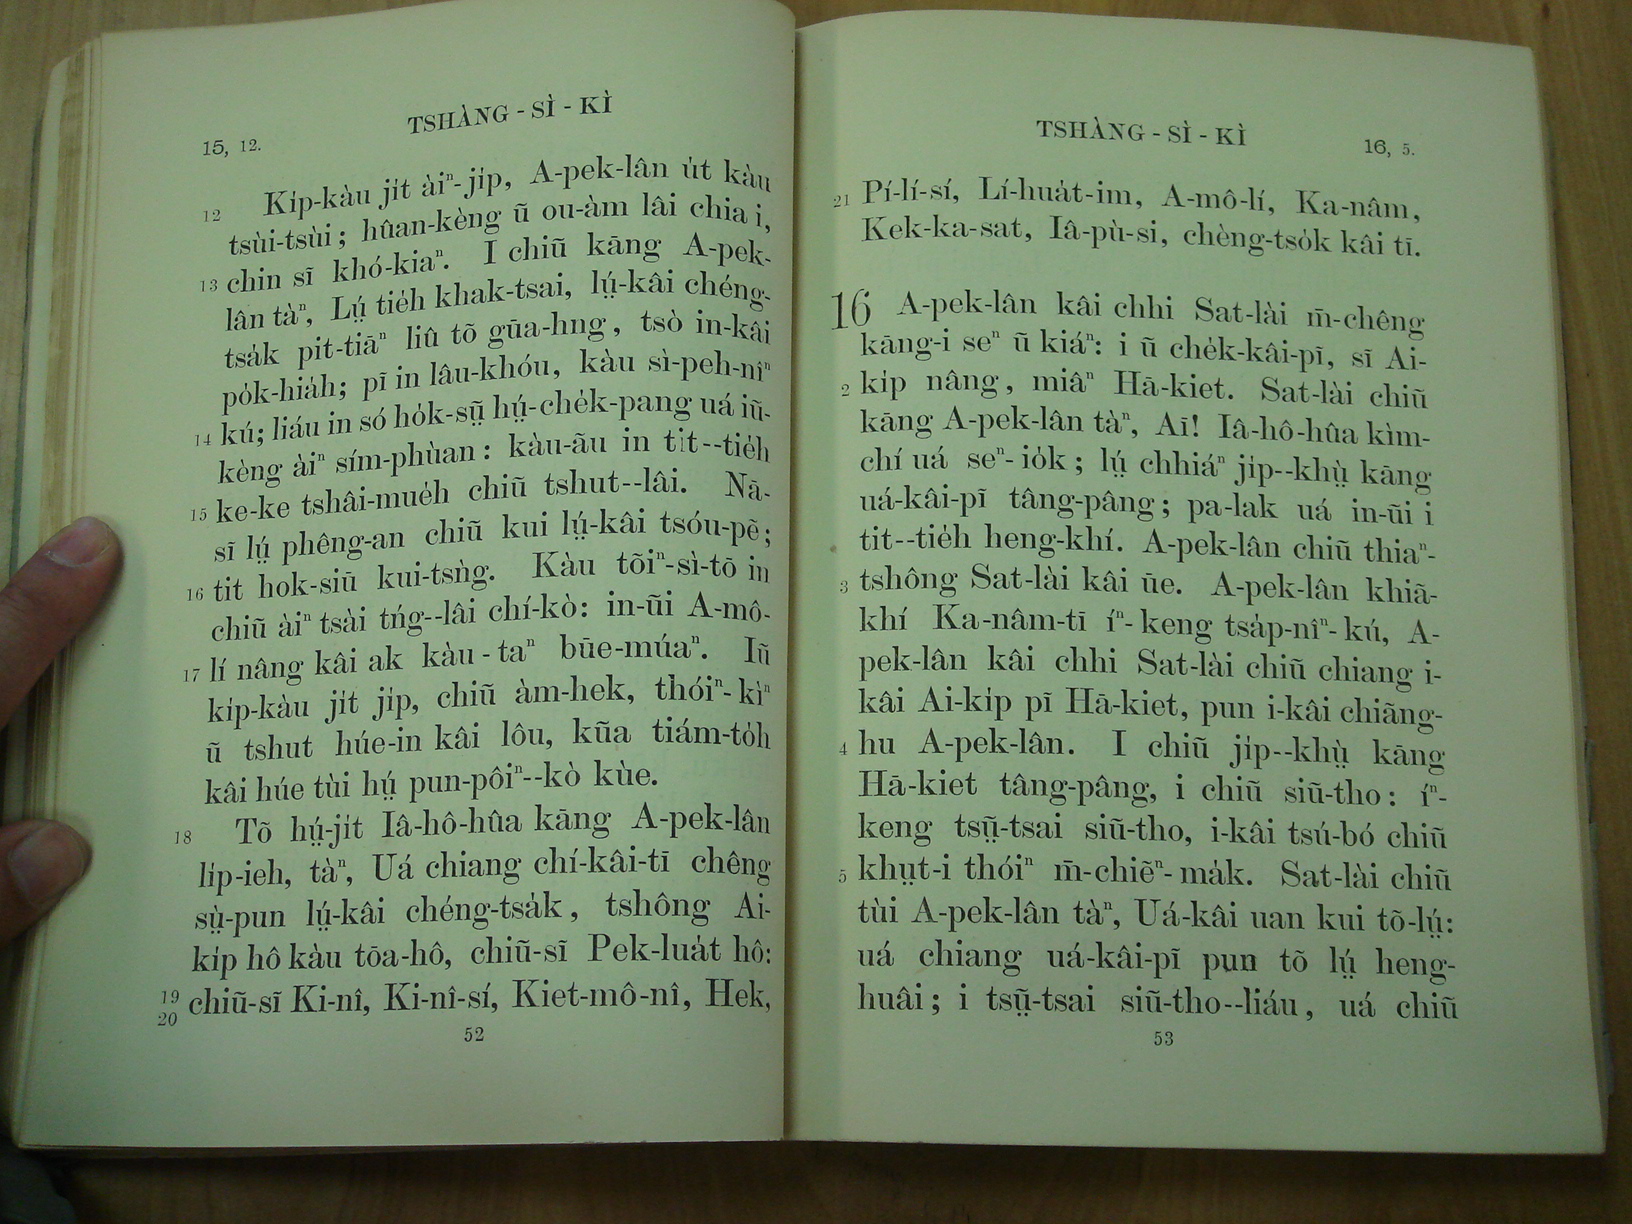 TSHÀNG - SÌ - KÌ
15, 12.
12 Ki̍p-kàu ji̍t àiⁿ-ji̍p, A-pek-lân u̍t kàu
tsùi-tsùi; hûan-kèng ũ ou-àm lâi chia i,
13 chin sĩ khó-kiaⁿ. I chiũ kāng A-pek-
lân tàⁿ, Lṳ́ tie̍h khak-tsai, lṳ́-kâi chéng-
tsa̍k pit-tiāⁿ liû tõ gūa-hng, tsò in-kâi
po̍k-hia̍h; pĩ in lâu-khóu, kàu sì-peh-nîⁿ
14 kú; liáu in só ho̍k-sṳ̄ hṳ́-che̍k-pang uá iũ-
kèng àiⁿ sím-phùan: kàu-ãu in tit--tie̍h
15 ke-ke tshâi-mue̍h chiũ tshut--lâi. Nā-
sĩ lṳ́ phêng-an chiũ kui lṳ́-kâi tsóu-pẽ;
16 tit hok-siũ kui-tsǹg. Kàu tõiⁿ-sì-tõ in
chiũ àiⁿ tsài tńg--lâi chí-kò: in-ũi A-mô-
17 lí nâng kâi ak kàu-taⁿ būe-múaⁿ. Iũ
ki̍p-kàu ji̍t ji̍p, chiũ àm-hek, thóiⁿ-kìⁿ
ũ tshut húe-in kâi lôu, kũa tiám-to̍h
kâi húe tùi hṳ́ pun-pôiⁿ--kò kùe.
18 Tõ hṳ́-ji̍t Iâ-hô-hûa kāng A-pek-lân
li̍p-ieh, tàⁿ, Uá chiang chí-kâi-tī chêng
sṳ̀-pun lṳ́-kâi chéng-tsa̍k, tshông Ai-
ki̍p hô kàu tōa-hô, chiũ-sĩ Pek-lua̍t hô:
19 20 chiũ-sĩ Ki-nî, Ki-nî-sí, Kiet-mô-nî, Hek,
52
TSHÀNG - SÌ - KÌ
16, 5.
21 Pí-lí-sí, Lí-hua̍t-im, A-mô-lí, Ka-nâm,
Kek-ka-sat, Iâ-pù-si, chèng-tso̍k kâi tī.
16 A-pek-lân kâi chhi Sat-lài m̄-chêng
kāng-i seⁿ ũ kiáⁿ: i ũ che̍k-kâi-pĩ, sĩ Ai-
2 ki̍p nâng, miâⁿ Hā-kiet. Sat-lài chiũ
kāng A-pek-lân tàⁿ, Aī! Iâ-hô-hûa kìm-
chí uá seⁿ-io̍k; lṳ́ chhiáⁿ ji̍p--khṳ̀ kāng
uá-kâi-pĩ tâng-pâng; pa-lak uá in-ũi i
tit--tie̍h heng-khí. A-pek-lân chiũ thiaⁿ-
3 tshông Sat-lài kâi ūe. A-pek-lân khiã-
khí Ka-nâm-tī íⁿ-keng tsa̍p-nîⁿ-kú, A-
pek-lân kâi chhi Sat-lài chiũ chiang i-
kâi Ai-ki̍p pĩ Hā-kiet, pun i-kâi chiãng-
4 hu A-pek-lân. I chiũ ji̍p--khṳ̀ kāng
Hā-kiet tâng-pâng, i chiũ siũ-tho: íⁿ-
keng tsṳ̃-tsai siũ-tho, i-kâi tsú-bó chiũ
5 khṳt-i thóiⁿ m̄-chiẽⁿ-ma̍k. Sat-lài chiũ
tùi A-pek-lân tàⁿ, Uá-kâi uan kui tõ-lṳ́:
uá chiang uá-kâi-pĩ pun tõ lṳ́ heng-
huâi; i tsṳ̃-tsai siũ-tho--liáu, uá chiũ
53